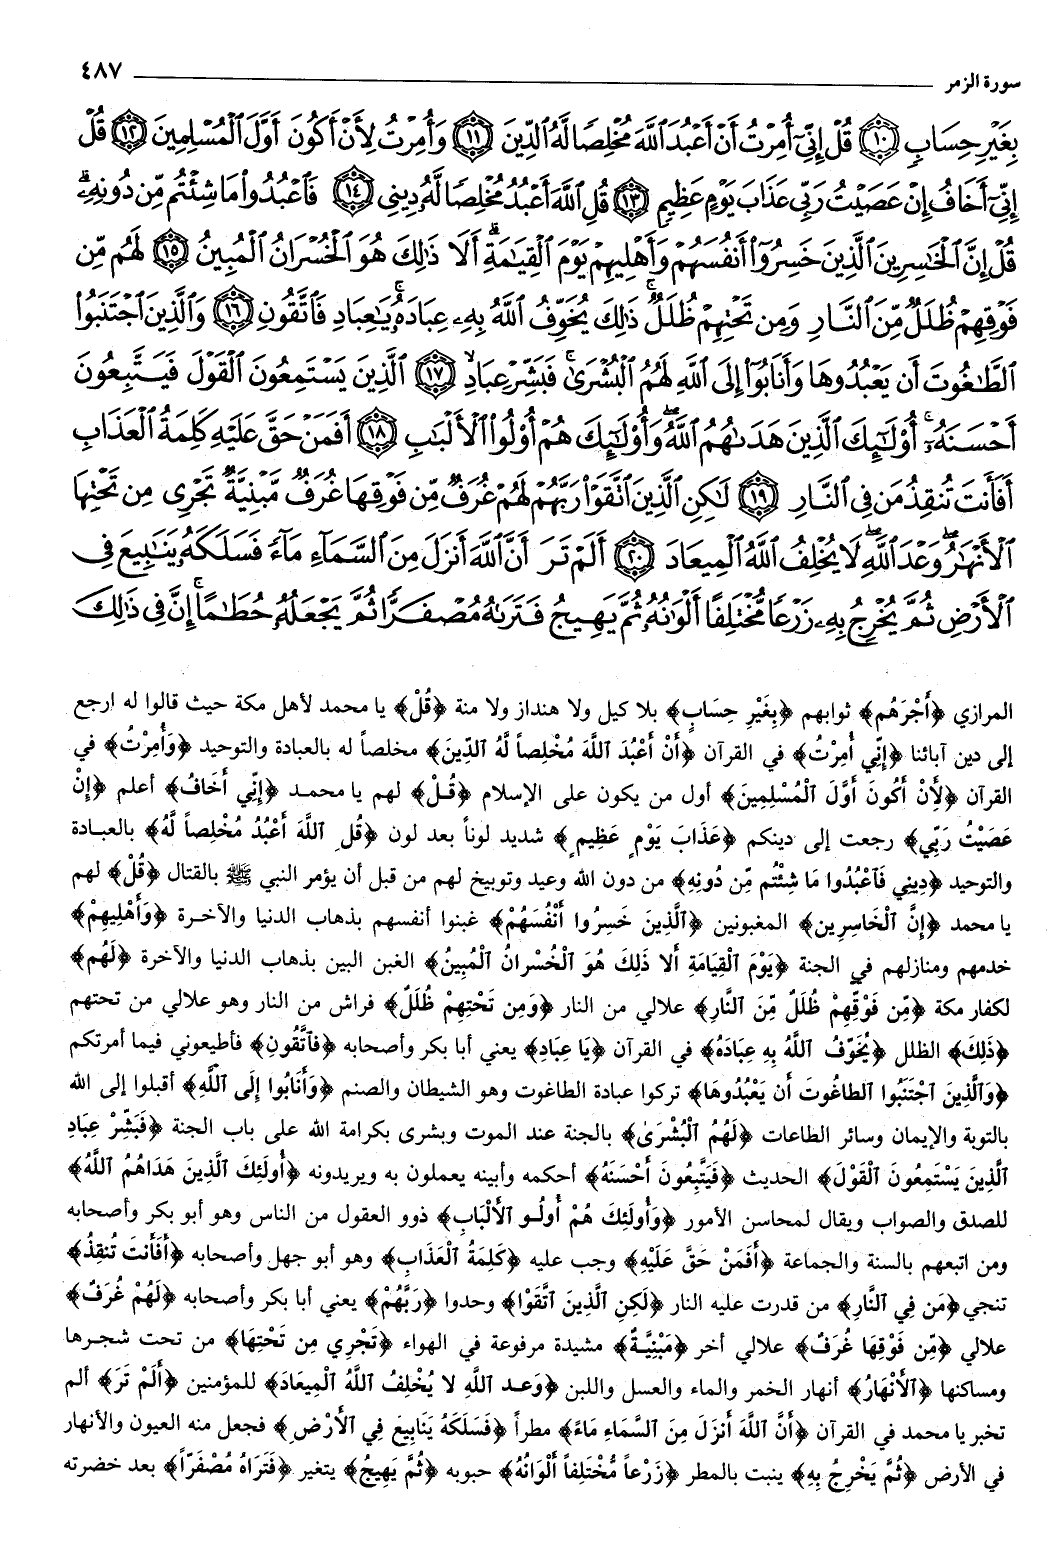 سورة الزمر ٤٨٧
بِغَيْرِ حِسَابٍ ۝١٠ قُلْ إِنِّىٓ أُمِرْتُ أَنْ أَعْبُدَ ٱللَّهَ مُخْلِصًا لَّهُ ٱلدِّينَ ۝١١ وَأُمِرْتُ لِأَنْ أَكُونَ أَوَّلَ ٱلْمُسْلِمِينَ ۝١٢ قُلْ
إِنِّىٓ أَخَافُ إِنْ عَصَيْتُ رَبِّى عَذَابَ يَوْمٍ عَظِيمٍ ۝١٣ قُلِ ٱللَّهَ أَعْبُدُ مُخْلِصًا لَّهُۥ دِينِى ۝١٤ فَٱعْبُدُوا۟ مَا شِئْتُم مِّن دُونِهِۦ ۗ
قُلْ إِنَّ ٱلْخَٰسِرِينَ ٱلَّذِينَ خَسِرُوٓا۟ أَنفُسَهُمْ وَأَهْلِيهِمْ يَوْمَ ٱلْقِيَٰمَةِ ۗ أَلَا ذَٰلِكَ هُوَ ٱلْخُسْرَانُ ٱلْمُبِينُ ۝١٥ لَهُم مِّن
فَوْقِهِمْ ظُلَلٌ مِّنَ ٱلنَّارِ وَمِن تَحْتِهِمْ ظُلَلٌ ۚ ذَٰلِكَ يُخَوِّفُ ٱللَّهُ بِهِۦ عِبَادَهُۥ ۚ يَٰعِبَادِ فَٱتَّقُونِ ۝١٦ وَٱلَّذِينَ ٱجْتَنَبُوا۟
ٱلطَّٰغُوتَ أَن يَعْبُدُوهَا وَأَنَابُوٓا۟ إِلَى ٱللَّهِ لَهُمُ ٱلْبُشْرَىٰ ۚ فَبَشِّرْ عِبَادِ ۙ ۝١٧ ٱلَّذِينَ يَسْتَمِعُونَ ٱلْقَوْلَ فَيَتَّبِعُونَ
أَحْسَنَهُۥٓ ۚ أُو۟لَٰٓئِكَ ٱلَّذِينَ هَدَىٰهُمُ ٱللَّهُ ۖ وَأُو۟لَٰٓئِكَ هُمْ أُو۟لُوا۟ ٱلْأَلْبَٰبِ ۝١٨ أَفَمَنْ حَقَّ عَلَيْهِ كَلِمَةُ ٱلْعَذَابِ
أَفَأَنتَ تُنقِذُ مَن فِى ٱلنَّارِ ۝١٩ لَٰكِنِ ٱلَّذِينَ ٱتَّقَوْا۟ رَبَّهُمْ لَهُمْ غُرَفٌ مِّن فَوْقِهَا غُرَفٌ مَّبْنِيَّةٌ تَجْرِى مِن تَحْتِهَا
ٱلْأَنْهَٰرُ ۖ وَعْدَ ٱللَّهِ ۖ لَا يُخْلِفُ ٱللَّهُ ٱلْمِيعَادَ ۝٢٠ أَلَمْ تَرَ أَنَّ ٱللَّهَ أَنزَلَ مِنَ ٱلسَّمَآءِ مَآءً فَسَلَكَهُۥ يَنَٰبِيعَ فِى
ٱلْأَرْضِ ثُمَّ يُخْرِجُ بِهِۦ زَرْعًا مُّخْتَلِفًا أَلْوَٰنُهُۥ ثُمَّ يَهِيجُ فَتَرَىٰهُ مُصْفَرًّا ثُمَّ يَجْعَلُهُۥ حُطَٰمًا ۚ إِنَّ فِى ذَٰلِكَ
المرازي ﴿أَجْرَهُم﴾ ثوابهم ﴿بِغَيْرِ حِسَابٍ﴾ بلا كيل ولا هنداز ولا منة ﴿قُلْ﴾ يا محمد لأهل مكة حيث قالوا له ارجع
إلى دين آبائنا ﴿إِنِّي أُمِرْتُ﴾ في القرآن ﴿أَنْ أَعْبُدَ اللَّهَ مُخْلِصاً لَّهُ الدِّينَ﴾ مخلصاً له بالعبادة والتوحيد ﴿وَأُمِرْتُ﴾ في
القرآن ﴿لِأَنْ أَكُونَ أَوَّلَ الْمُسْلِمِينَ﴾ أول من يكون على الإسلام ﴿قُلْ﴾ لهم يا محمد ﴿إِنِّي أَخَافُ﴾ أعلم ﴿إِنْ
عَصَيْتُ رَبِّي﴾ رجعت إلى دينكم ﴿عَذَابَ يَوْمٍ عَظِيمٍ﴾ شديد لوناً بعد لون ﴿قُلِ اللَّهَ أَعْبُدُ مُخْلِصاً لَّهُ﴾ بالعبادة
والتوحيد ﴿دِينِي فَاعْبُدُوا مَا شِئْتُم مِّن دُونِهِ﴾ من دون الله وعيد وتوبيخ لهم من قبل أن يؤمر النبي ﷺ بالقتال ﴿قُلْ﴾ لهم
يا محمد ﴿إِنَّ الْخَاسِرِين﴾ المغبونين ﴿الَّذِينَ خَسِرُوا أَنْفُسَهُمْ﴾ غبنوا أنفسهم بذهاب الدنيا والآخرة ﴿وَأَهْلِيهِمْ﴾
خدمهم ومنازلهم في الجنة ﴿يَوْمَ الْقِيَامَةِ أَلا ذَلِكَ هُوَ الْخُسْرانُ الْمُبِينُ﴾ الغبن البين بذهاب الدنيا والآخرة ﴿لَهُم﴾
لكفار مكة ﴿مِّن فَوْقِهِمْ ظُلَلٌ مِّنَ النَّارِ﴾ علالي من النار ﴿وَمِن تَحْتِهِمْ ظُلَلٌ﴾ فراش من النار وهو علالي من تحتهم
﴿ذَلِكَ﴾ الظلل ﴿يُخَوِّفُ اللَّهُ بِهِ عِبَادَهُ﴾ في القرآن ﴿يَا عِبَادِ﴾ يعني أبا بكر وأصحابه ﴿فَاتَّقُونِ﴾ فأطيعوني فيما أمرتكم
﴿وَالَّذِينَ اجْتَنَبُوا الطاغُوتَ أَن يَعْبُدُوهَا﴾ تركوا عبادة الطاغوت وهو الشيطان والصنم ﴿وَأَنَابُوا إِلَى اللَّهِ﴾ أقبلوا إلى الله
بالتوبة والإيمان وسائر الطاعات ﴿لَهُمُ الْبُشْرَىٰ﴾ بالجنة عند الموت وبشرى بكرامة الله على باب الجنة ﴿فَبَشِّرْ عِبَادِ
الَّذِينَ يَسْتَمِعُونَ الْقَوْلَ﴾ الحديث ﴿فَيَتَّبِعُونَ أَحْسَنَهُ﴾ أحكمه وأبينه يعملون به ويريدونه ﴿أُولَئِكَ الَّذِينَ هَدَاهُمُ اللَّهُ﴾
للصدق والصواب ويقال لمحاسن الأمور ﴿وَأُولَئِكَ هُمْ أُولُو الْأَلْبَابِ﴾ ذوو العقول من الناس وهو أبو بكر وأصحابه
ومن اتبعهم بالسنة والجماعة ﴿أَفَمَنْ حَقَّ عَلَيْهِ﴾ وجب عليه ﴿كَلِمَةُ الْعَذَابِ﴾ وهو أبو جهل وأصحابه ﴿أَفَأَنتَ تُنقِذُ﴾
تنجي ﴿مَن فِي النَّارِ﴾ من قدرت عليه النار ﴿لَكِنِ الَّذِينَ اتَّقَوْا﴾ وحدوا ﴿رَبَّهُمْ﴾ يعني أبا بكر وأصحابه ﴿لَهُمْ غُرَفٌ﴾
علالي ﴿مِّن فَوْقِهَا غُرَفٌ﴾ علالي أخر ﴿مَبْنِيَّةٌ﴾ مشيدة مرفوعة في الهواء ﴿تَجْرِي مِن تَحْتِهَا﴾ من تحت شجرها
ومساكنها ﴿الْأَنْهَارُ﴾ أنهار الخمر والماء والعسل واللبن ﴿وَعد اللَّهِ لا يُخْلِفُ اللَّهُ الْمِيعَادَ﴾ للمؤمنين ﴿أَلَمْ تَرَ﴾ ألم
تخبر يا محمد في القرآن ﴿أَنَّ اللَّهَ أَنزَلَ مِنَ السَّمَاءِ مَاءً﴾ مطراً ﴿فَسَلَكَهُ يَنَابِيعَ فِي الْأَرْضِ﴾ فجعل منه العيون والأنهار
في الأرض ﴿ثُمَّ يَخْرِجُ بِهِ﴾ ينبت بالمطر ﴿زَرْعاً مُخْتَلِفاً أَلْوَانُهُ﴾ حبوبه ﴿ثُمَّ يَهِيجُ﴾ يتغير ﴿فَتَرَاهُ مُصْفَرّاً﴾ بعد خضرته